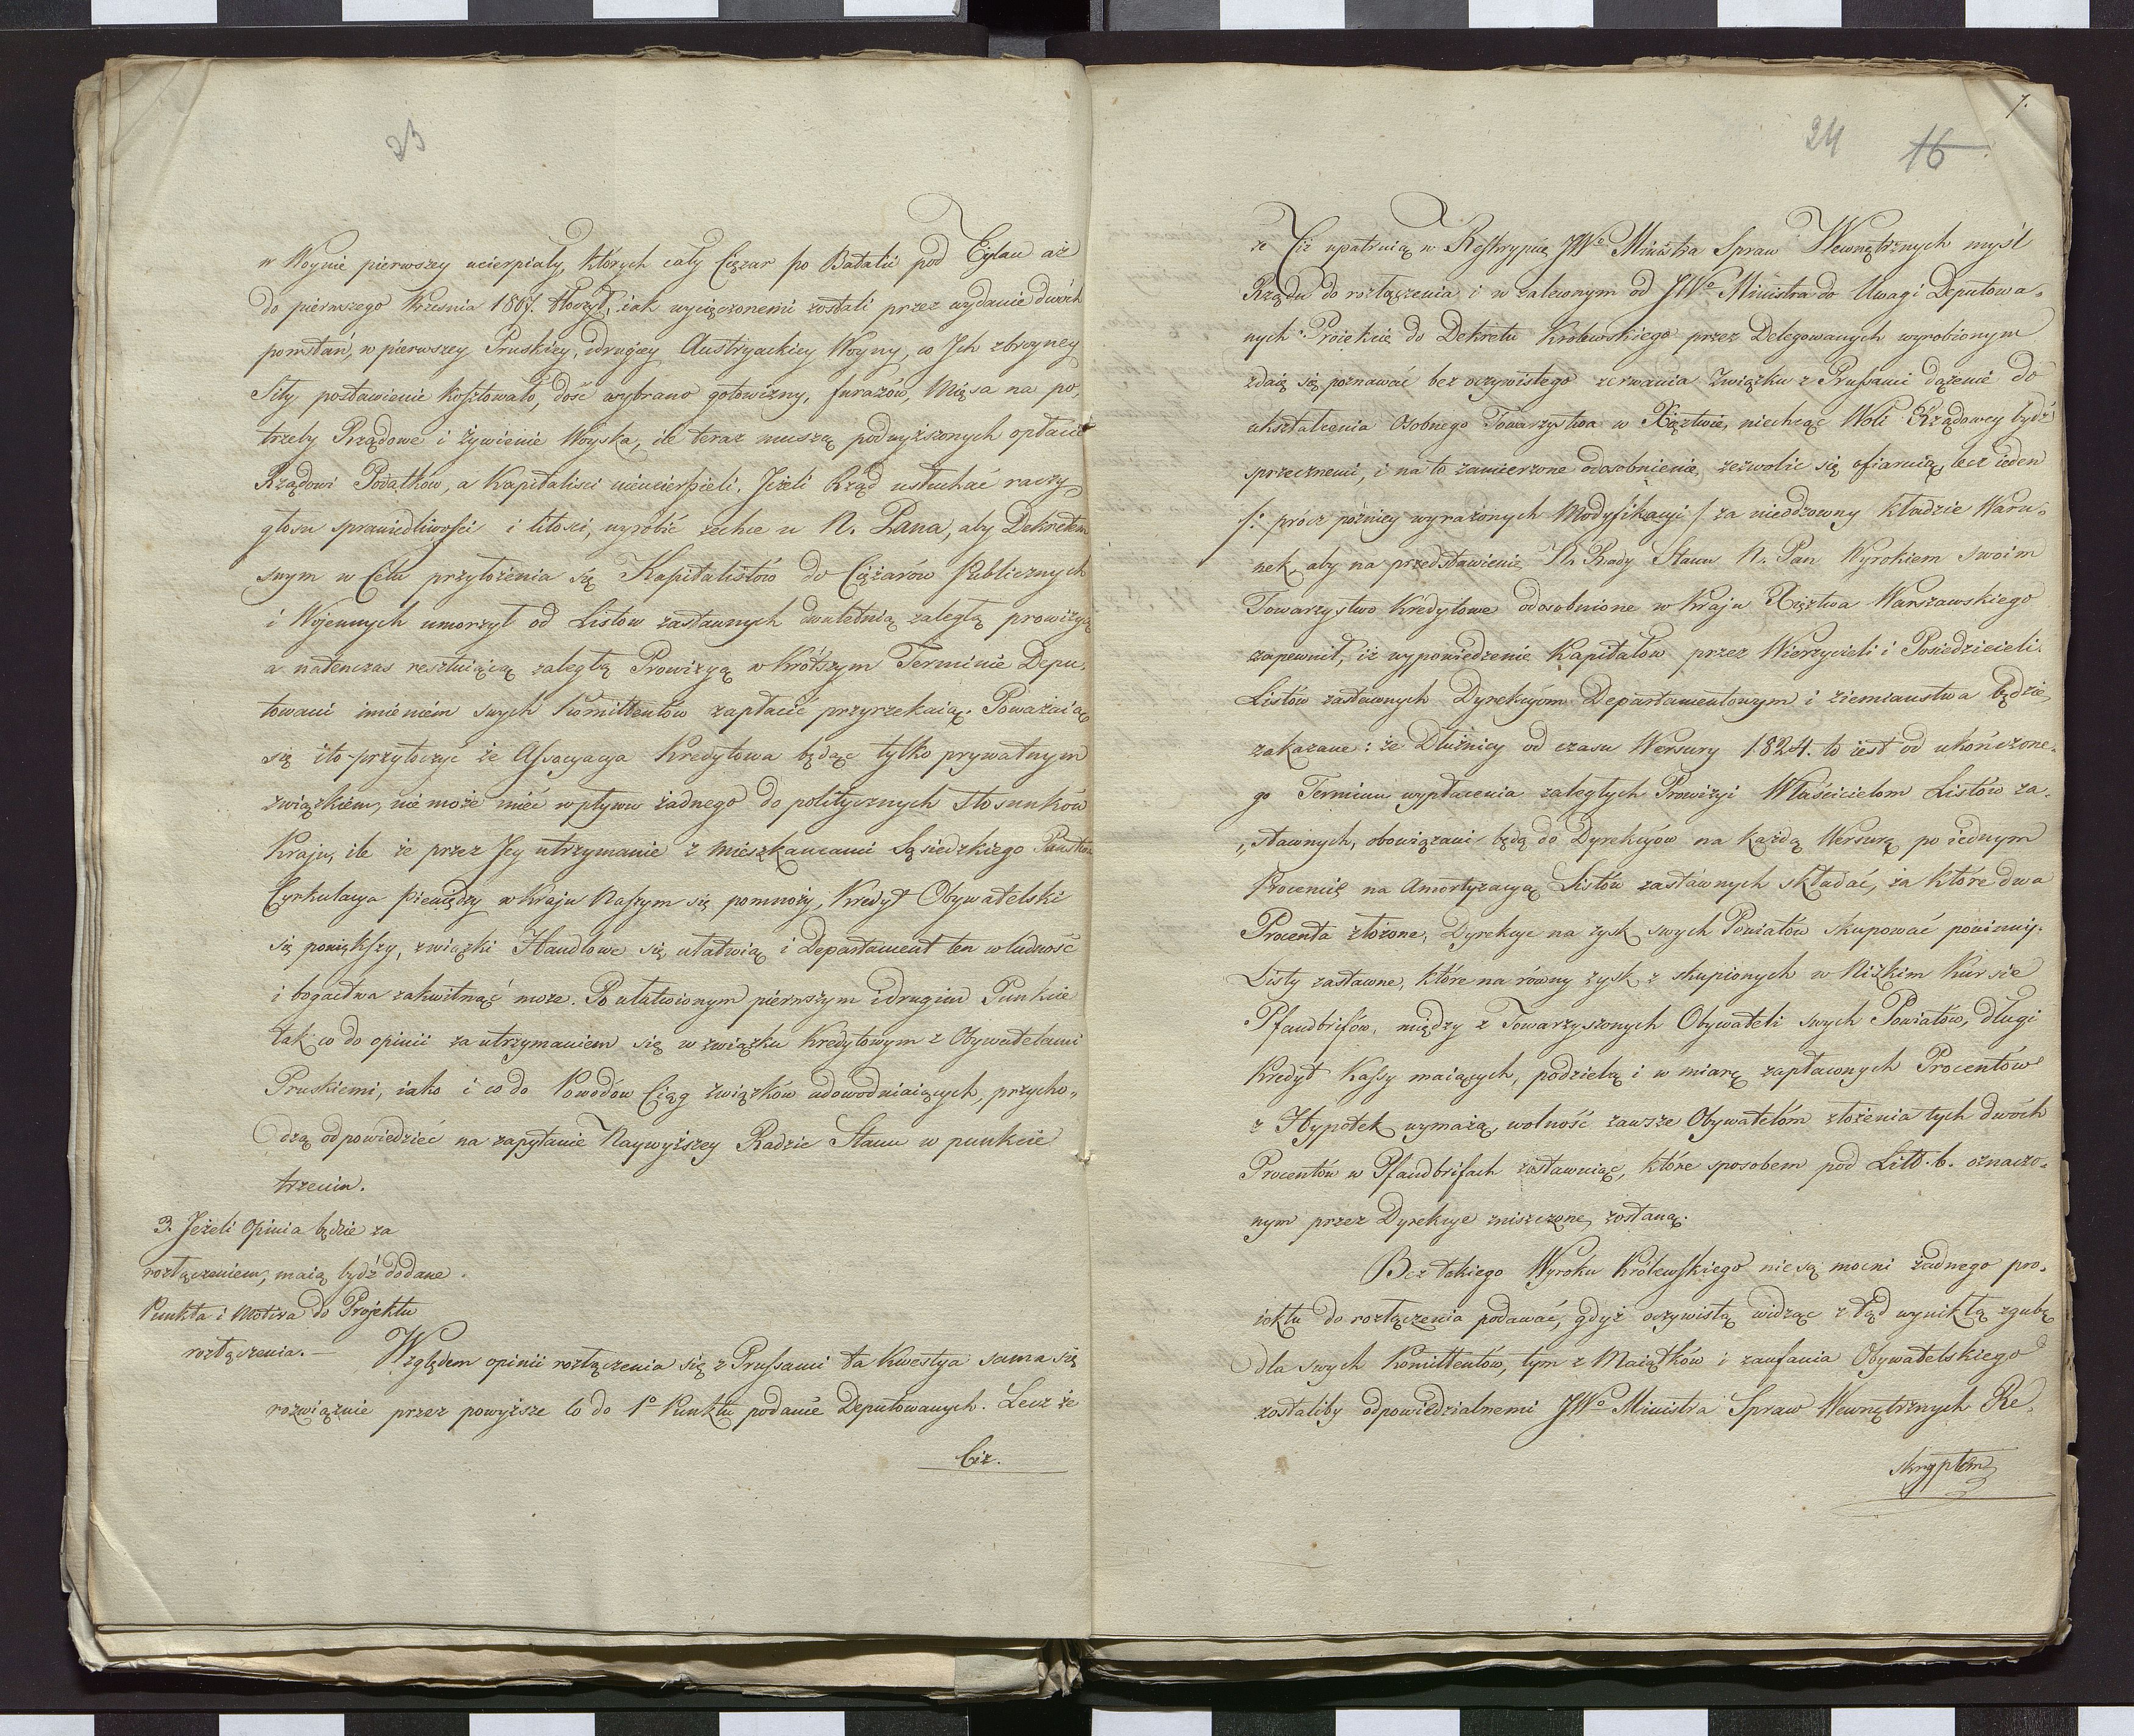 23
w Woynie pierwszey ucierpiały, których cały Ciężar po Batalii pod Eylau aż
do pierwszego Września 1807. tłoczył, iak wycięczonemi zostali przez wydanie dwóch
powstań, w pierwszey Pruskiey, idrugiey Austryackiey Woyny, co Ich zbroyney
Siły postawienie kosztowało, dość wybrano gotowizny, furażów, Mięsa na po„
trzeby Rządowe i żywienie Woyska, ile teraz muszą podwyższonych opłacić
Rządowi Podatków, a Kapitaliści nieucierpieli. Jeżeli Rząd usłuchać raczy
głosu sprawiedliwości i litości, wyrobić zechce u N. Pana, aby Dekretem
swym w Celu przyłożenia się Kapitalistów do Ciężarów Publicznych
i Wojennych umorzył od Listów zastawnych dwuletnią zaległą prowizyą
a natenczas resztuiącą zaległą Prowizyą w krótszym Terminie Depu„
towani imieniem swych Komittentów zapłacić przyrzekaią. Poważaią
się ito przytoczyć że Assocyacya Kredytowa będąc tylko prywatnym
związkiem, nie może mieć wpływu żadnego do politycznych Stosunków
Kraju, ile że przez Jey utrzymanie z mieszkańcami Sąsiedzkiego Państwa
Cyrkulacya Pieniędzy w Kraju Naszym się pomnoży, Kredyt Obywatelski
się powiększy, związki Handlowe się ułatwią i Departament ten w ludność
i bogactwa zakwitnąć może. Po ułatwionym pierwszym idrugim Punkcie
tak co do opinii za utrzymaniem się w związku Kredytowym z Obywatelami
Pruskiemi, iako i co do Powodów Ciąg związków udowodniaiących, przycho„
dzą odpowiedzieć na zapytanie Naywyższey Radzie Stanu w punkcie
trzecim.
3. Jeżeli Opinia będzie za
rozłączeniem, maią bydź dodane
Punkta i Motiva do Projektu
rozłączenia. —
Względem opinii rozłączenia się z Prussami ta Kwestya sama się
rozwiąznie przez powyższe co do 1º Punktu podanie Deputowanych. Lecz że
Ciż.
7.
24 16
że Ciż upatruią w Reskrypcie JWº Ministra Spraw Wewnętrznych myśl
Rządu do rozłączenia i w zalewnym od JWº Ministra do Uwagi Deputowa„
nych Proiekcie do Dekretu Królewskiego przez Delegowanych wyrobionym
zdaią się poznawać bez oczywistego zerwania Związku z Prussami dążenie do
ukształcenia Osobnego Towarzystwa w Xięztwie, niechcąc Woli Rządowey bydź
sprzecznemi, i na to zamierzone odosobnienie, zezwolić się ofiaruią, lecz ieden
/: prócz pożniey wyrażonych Modyfikacyi / za nieodzowny kładzie Waru„
nek, aby na przedstawienie N. Rady Stanu N. Pan Wyrokiem swoim
Towarzystwo Kredytowe odosobnione w Kraju Xięztwa Warszawskiego
zapewnił, iż wypowiedzenie Kapitałów przez Wierzycieli i Posiedzicieli
Listów zastawnych Dyrekcyom Departamentowym i ziemiaństwa będzie,
zakazane: że Dłużnicy od czasu Wersury 1824. to iest od ukończone„
go Terminu wypłacenia zaległych Prowizyi Właścicielom Listów za„
„stawnych, obowiązani będą do Dyrekcyów na każdą Wersurę po iednym
Procencie na Amortyzacyą Listów zastawnych składać, za które dwa
Procenta złożone, Dyrekcye na zysk swych Powiatów skupować powinny
Listy zastawne, które na równy zysk z skupionych w Nizkim Kursie
Pfandbrifów, między z Towarzyszonych Obywateli swych Powiatów, długi
Kredyt Kassy maiących, podzielą i w miarę zapłaconych Procentów
z Hypotek wymażą, wolność zawsze Obywatelom złożenia tych dwóch
Procentów w Pfandbrifach zostawuiąc, które sposobem pod Litt. b. oznaczo„
nym przez Dyrekcye zniszczone, zostaną.
Bez tekiego Wyroku Królewskiego nie są mocni żadnego pro„
iektu do rozłączenia podawać, gdyż oczywistą widząc z tąd wynikłą zgubę
dla swych Komittentów, tym z Maiątków i zaufania Obywatelskiego
zostaliby odpowiedzialnemi JWº Ministra Spraw Wewnętrznych Re„
skryptem